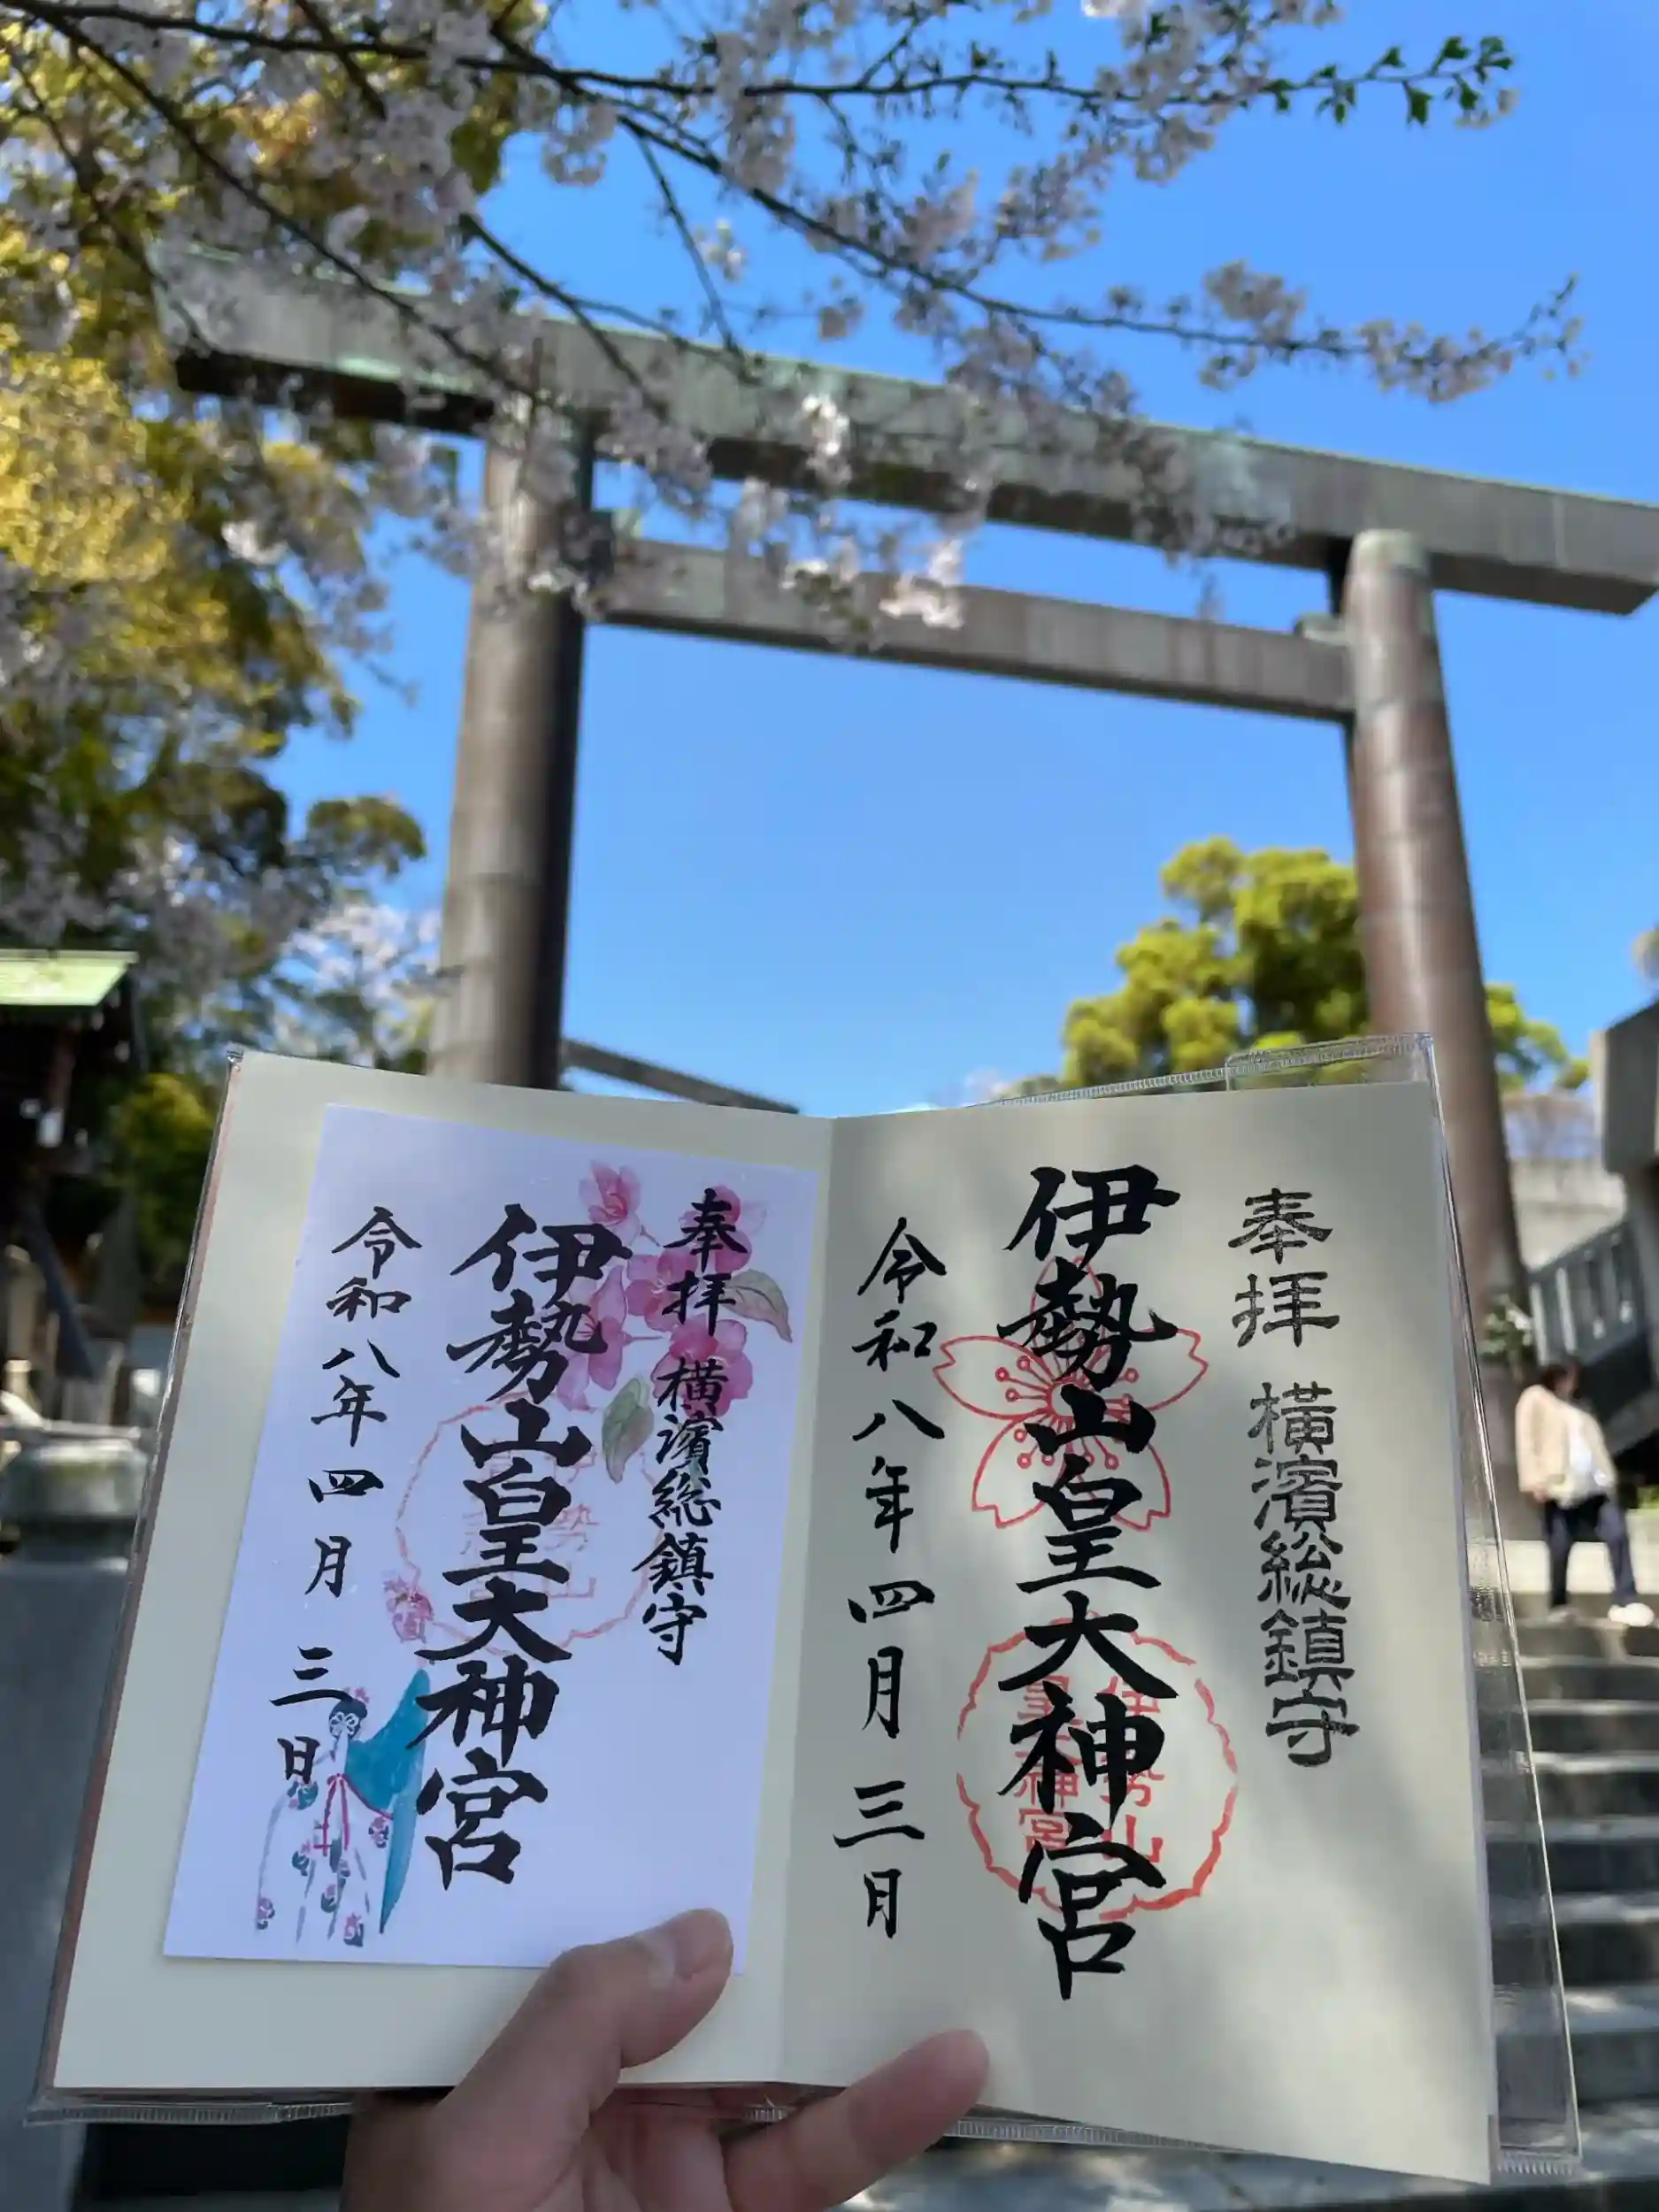 奉拝 横濱総鎮守
伊勢山皇大神宮
令和八年四月三日
奉拝 横濱総鎮守
伊勢山皇大神宮
令和八年四月三日